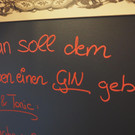 an soll dem
en einen GIN geb
& Tonic